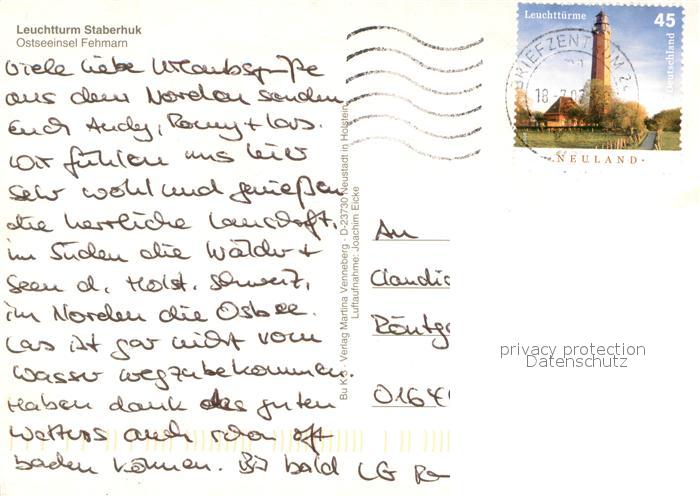 Leuchtturm Staberhuk
Ostseeinsel Fehmarn
Viele liebe Urlaubsgrüße
aus dem Norden senden
Euch Andy, Romy + Lars.
Wir fühlen uns hier
sehr wohl und genießen
die herrliche Landschaft,
im Süden die Wälder +
Seen d. Holst. Schweiz,
im Norden die Ostsee.
Lars ist gar nicht vom
Wasser wegzubekommen.
Haben dank des guten
Wetters auch schon oft
baden können. Bis bald LG
Bu K 6 · Verlag Martina Venneberg · D-23730 Neustadt in Holstein
Luftaufnahme: Joachim Eicke
Leuchttürme 45
Deutschland
NEULAND
BRIEFZENTRUM 2
18
An
Claudia
Röntg
0164
privacy protection
Datenschutz